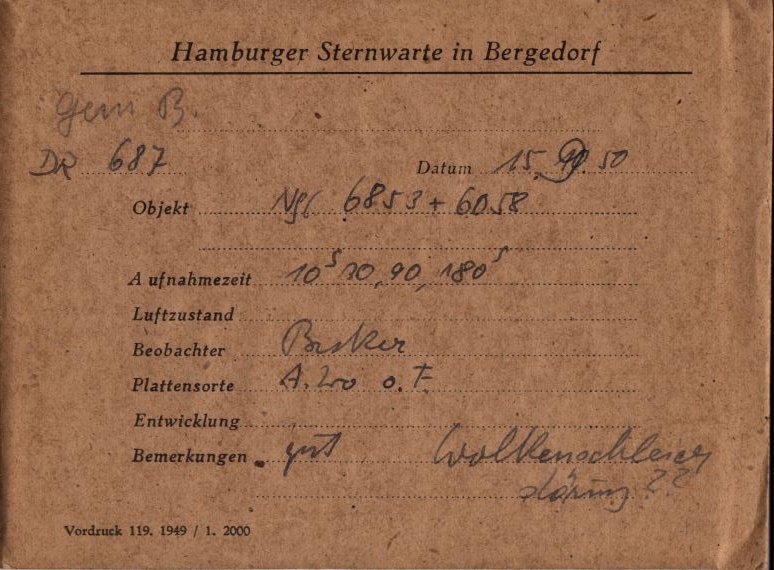 Hamburger Sternwarte in Bergedorf
Gem B
DR 687
Datum 15. 50
Objekt NGC 6853 + 6058
Aufnahmezeit 10ˢ 30, 90, 180ˢ
Luftzustand
Beobachter
Plattensorte o. F
Entwicklung
Bemerkungen gut Wolkenschleier
störung ??
Vordruck 119. 1949 / 1. 2000